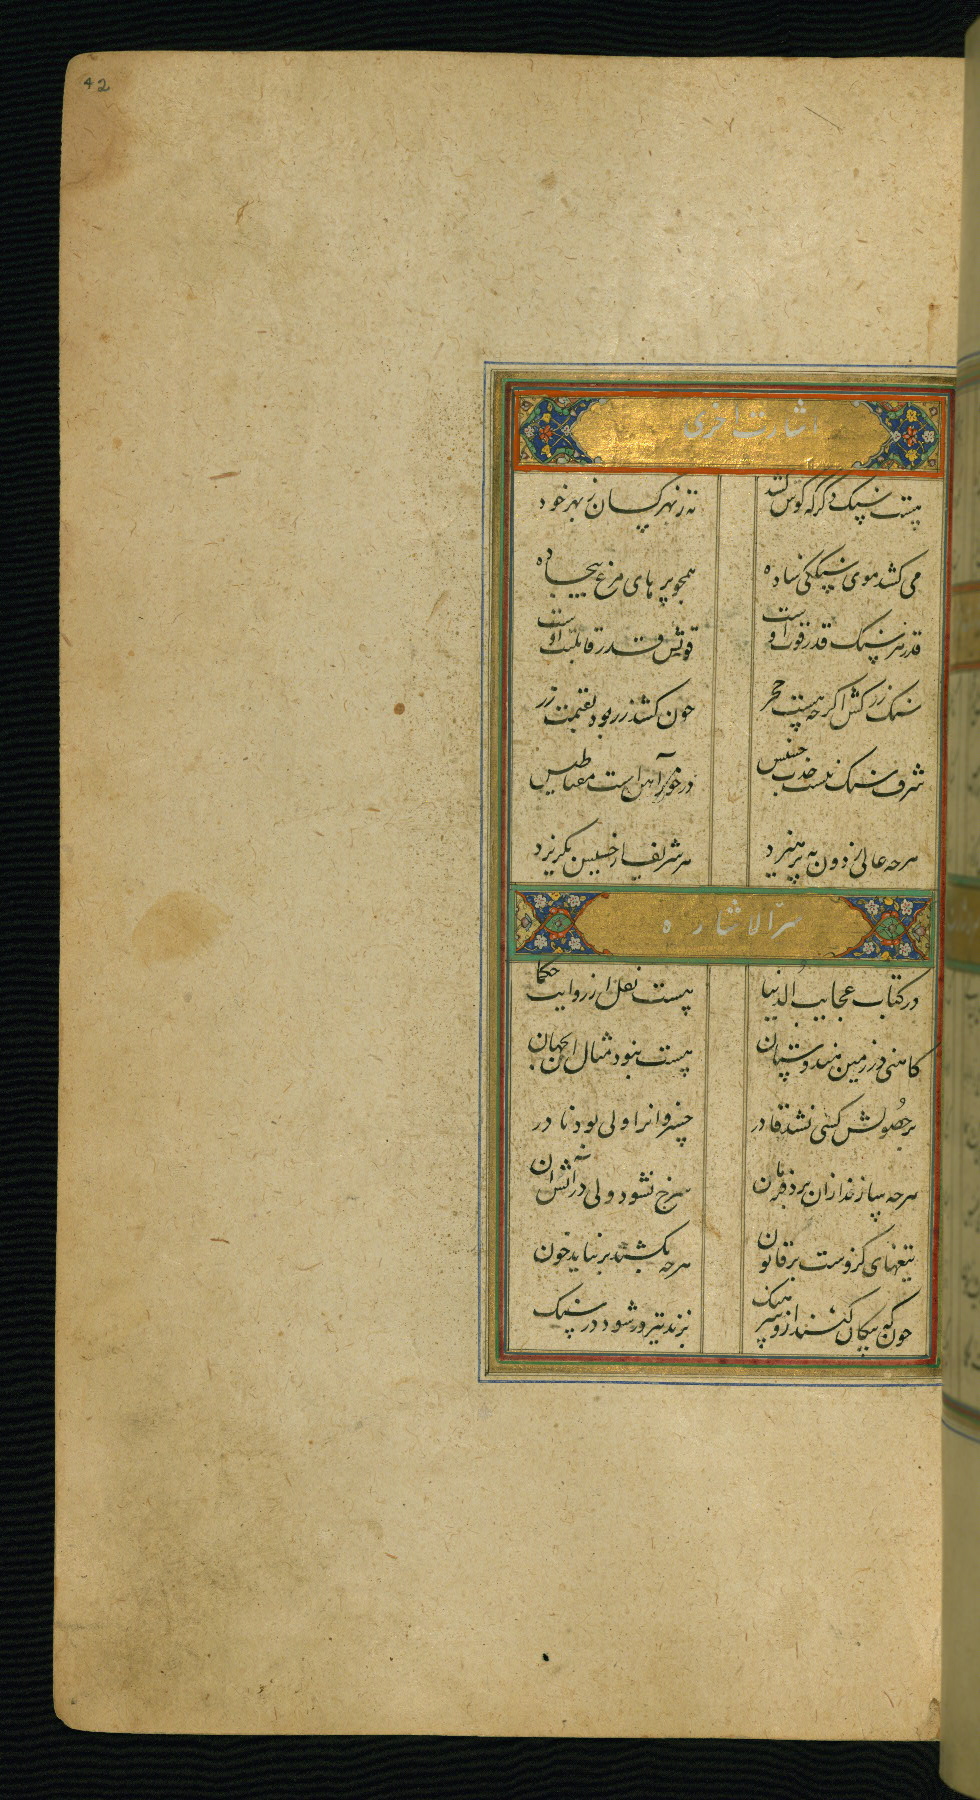 42
اشارت اخری
هست سنگ دگر که گوش کشد نه ز بهر کسان ز بهر خود
می کشد موی سنگکی ساده همچو پرهای مرغ بیجاده
قدر هر سنگ قدر قوت اوست قوتش قدر قابلیت اوست
سنک زرکش اگرچه هست حجر چون کشد زر بود بقیمت زر
شرف سنک نیست جذب خسیس درخور آهن است مغناطیس
هرچه عالی ز دون بپرهیزد هر شریف از خسیس بگریزد
سر الاشاره
در کتاب عجایب الدنیا هست نقل از روایت حکما
کاهنی در زمین هندوستان هست نبود مثال آن بجهان
بر حصولش کسی نشد قادر خسروانرا ولی بود نادر
هرچه سازند ازان برد فرمان سرخ نشود ولی در آتش آن
تیغهای کزوست بر قانون هرچه بکشند برنیاید خون
چون که پیکان کنند ازو سرهنک بزند تیر و در شود در سنک